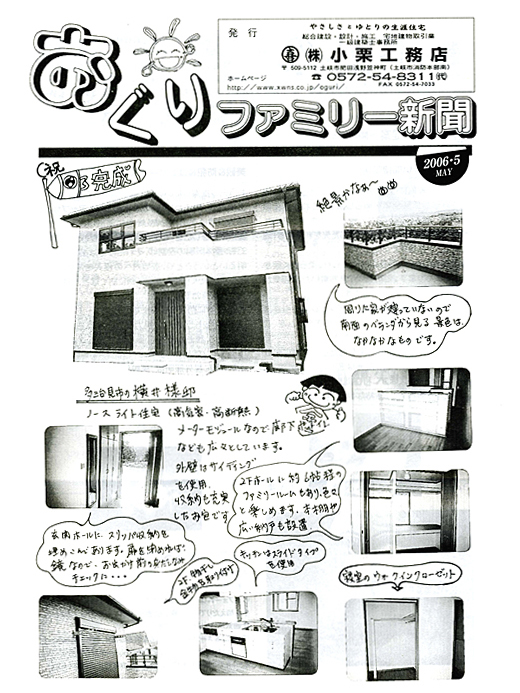 おぐり
ファミリー新聞
発行
やさしさとゆとりの生涯住宅
総合建設・設計・施工 宅地建物取引業
一級建築士事務所
(株) 小栗工務店
〒509-5112 土岐市肥田浅野笠神町(土岐市消防本部南)
☎ 0572-54-8311㈹
FAX 0572-54-7033
ホームページ
http://www.xwns.co.jp/oguri/
2006・5
MAY
祝
完成
絶景かなぁ〜
周りに家が建っていないので
南面のベランダから見る景色は、
なかなかなものです。
多治見市の横井様邸
ノースライト住宅(高気密・高断熱)
メーターモジュールなので廊下やトイレ
なども広々としています。
外壁はサイディング
を使用。
収納も充実
したお宅です
2Fホールに約6帖程の
ファミリールームもあり、色々
と楽しめます。本棚や
広い納戸も設置。
玄関ホールに スリッパ収納を
埋めこんであります。扉を閉めれば、
鏡なので、お出かけ前の身だしなみ
チェックに・・・
2F 物干し
金物も取り付け
キッチンはスライドタイプ
を使用
寝室のウォークインクローゼット